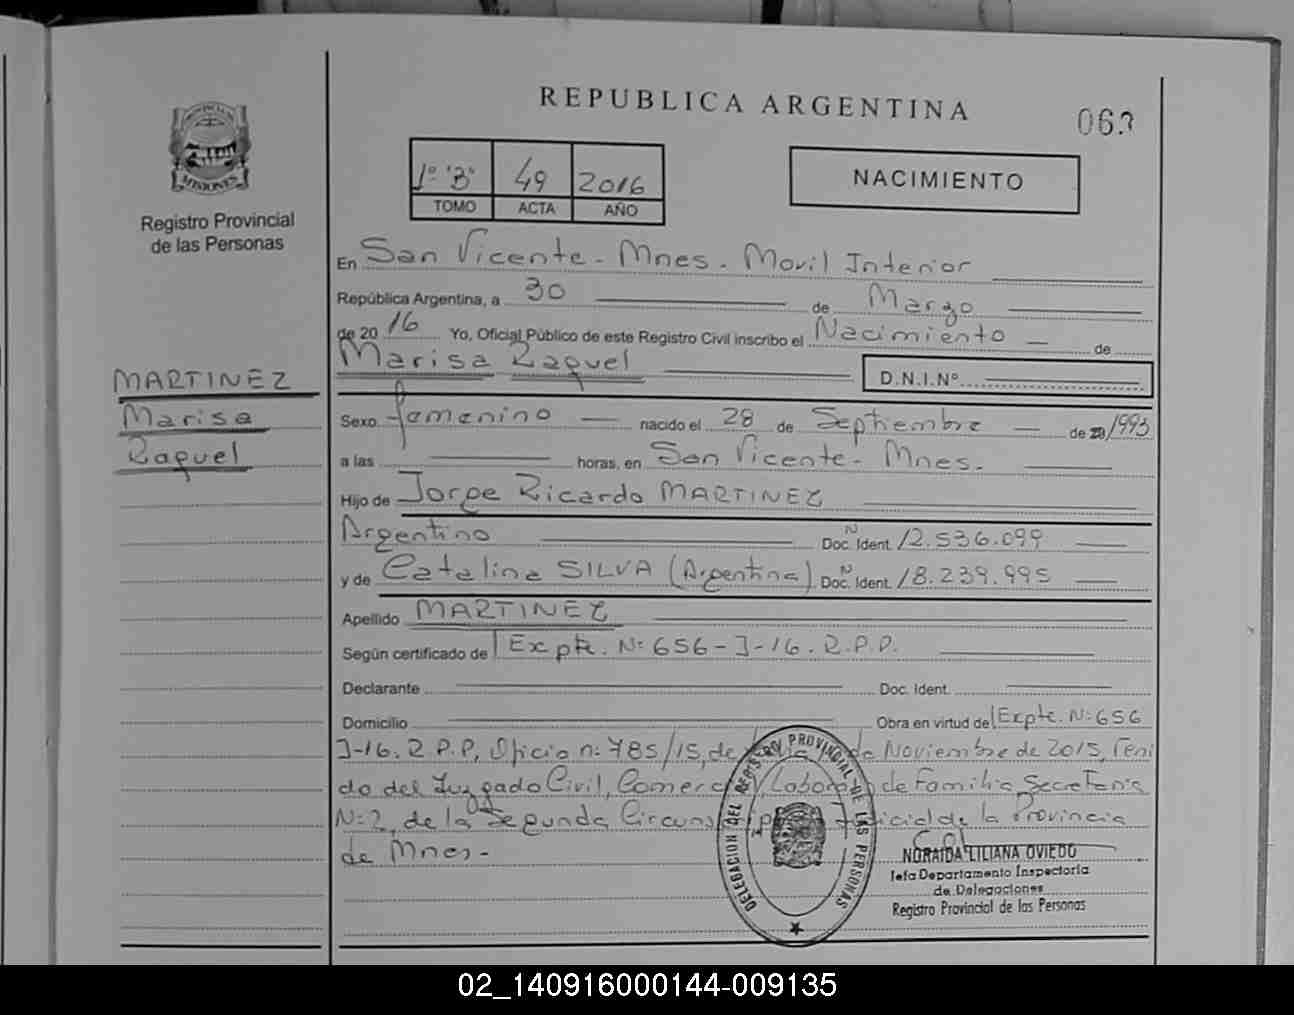 REPUBLICA ARGENTINA
PROVINCIA DE
MISIONES
Registro Provincial
de las Personas
1º "B" 49 2016
TOMO ACTA AÑO
NACIMIENTO
En San Vicente - Mnes. Movil Interior
República Argentina, a 30 de Marzo
de 2016 Yo, Oficial Público de este Registro Civil inscribo el Nacimiento de
Marisa Raquel D.N.I.Nº
MARTINEZ
Marisa
Raquel
Sexo femenino nacido el 28 de Septiembre de 1993
a las horas, en San Vicente - Mnes.
Hijo de Jorge Ricardo MARTINEZ
Argentino Doc. Ident. Nº 12.536.099
y de Catalina SILVA (Argentina) Doc. Ident. Nº 18.239.995
Apellido MARTINEZ
Según certificado de Expte. Nº 656-J-16. R.P.P.
Declarante Doc. Ident.
Domicilio Obra en virtud de Expte. Nº 656
J-16. R.P.P, Oficio nº 785/15, de de Noviembre de 2015, Teni
do del Juzgado Civil, Comerc Laboral de Familia Secretaria
Nº 2, de la Segunda Circuns icial de la Provincia
de Mnes-
DELEGACION DEL REGISTRO PROVINCIAL DE LAS PERSONAS
NORAIDA LILIANA OVIEDO
Jefa Departamento Inspectoria
de Delegaciones
Registro Provincial de las Personas
02_140916000144-009135